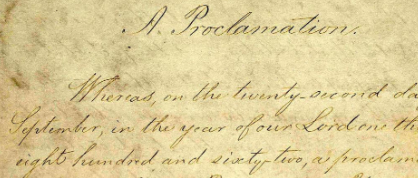 A Proclamation.
Whereas, on the twenty-second da
September, in the year of our Lord one th
eight hundred and sixty-two, a proclam